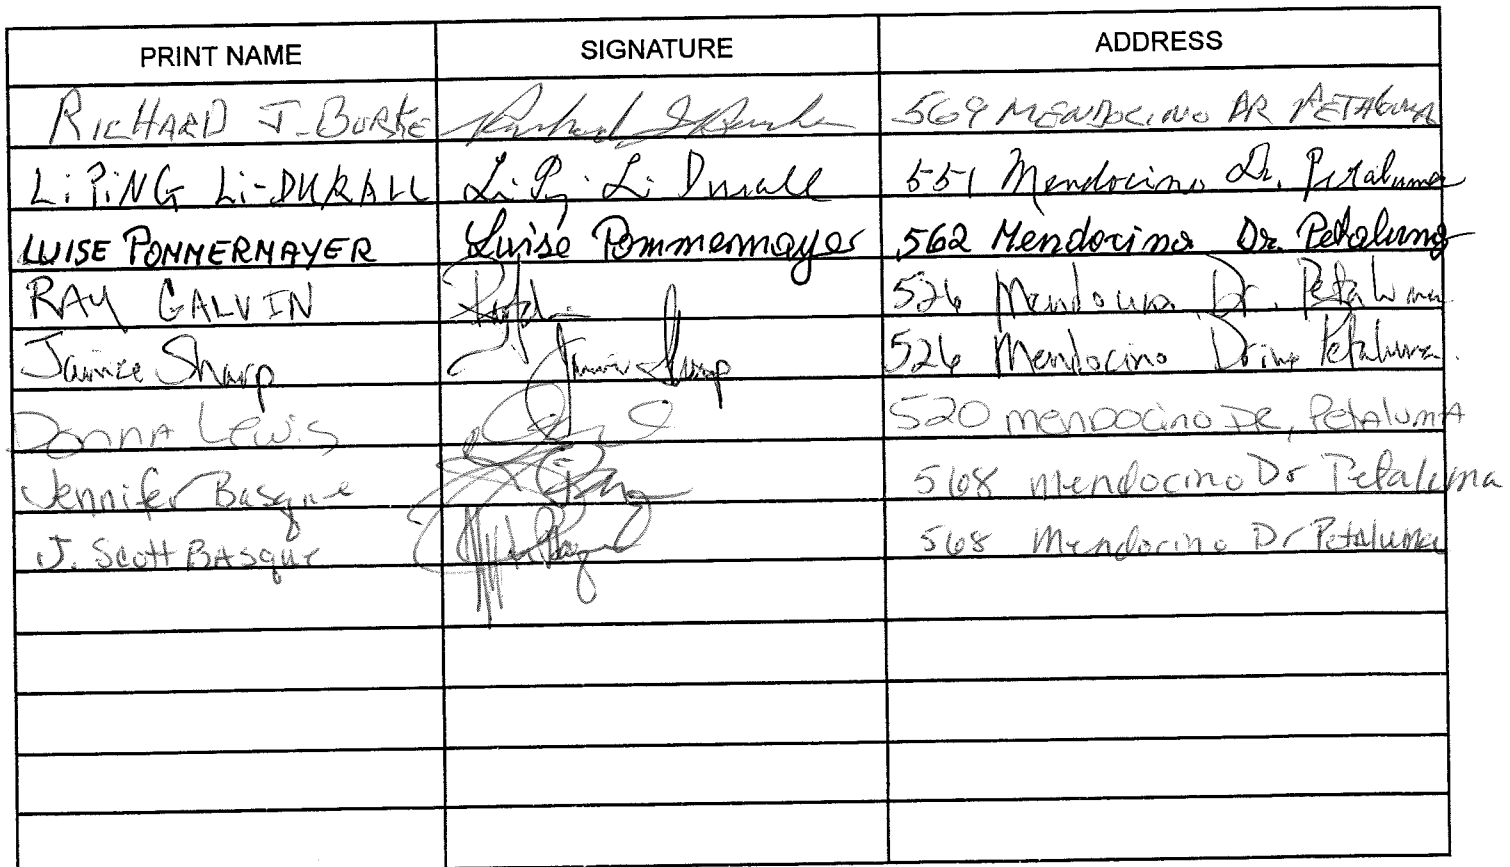 PRINT NAME SIGNATURE ADDRESS
RICHARD J. BURKE Richard J Burke 569 MENDOCINO DR PETALUMA
LiPiNG Li-DURALL Li Pi Li Durall 551 Mendocino Dr. Petaluma
LUISE POMMERMAYER Luise Pommermayer 562 Mendocino Dr. Petaluma
RAY GALVIN 526 Mendocino Dr. Petaluma
Janice Sharp Janice Sharp 526 Mendocino Drive Petaluma.
Donna Lewis 520 mendocino DR, PetalumA
Jennifer Basque 568 mendocino Dr Petaluma
J. Scott BAsque 568 Mendocino Dr Petaluma